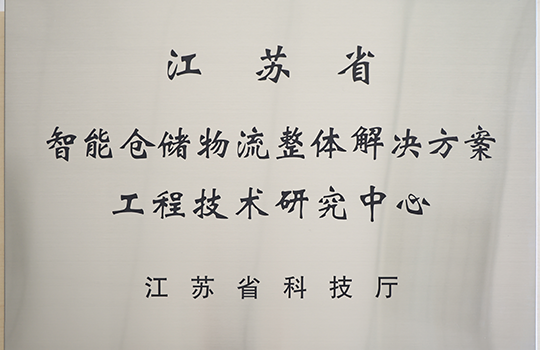 江苏省
智能仓储物流整体解决方案
工程技术研究中心
江苏省科技厅